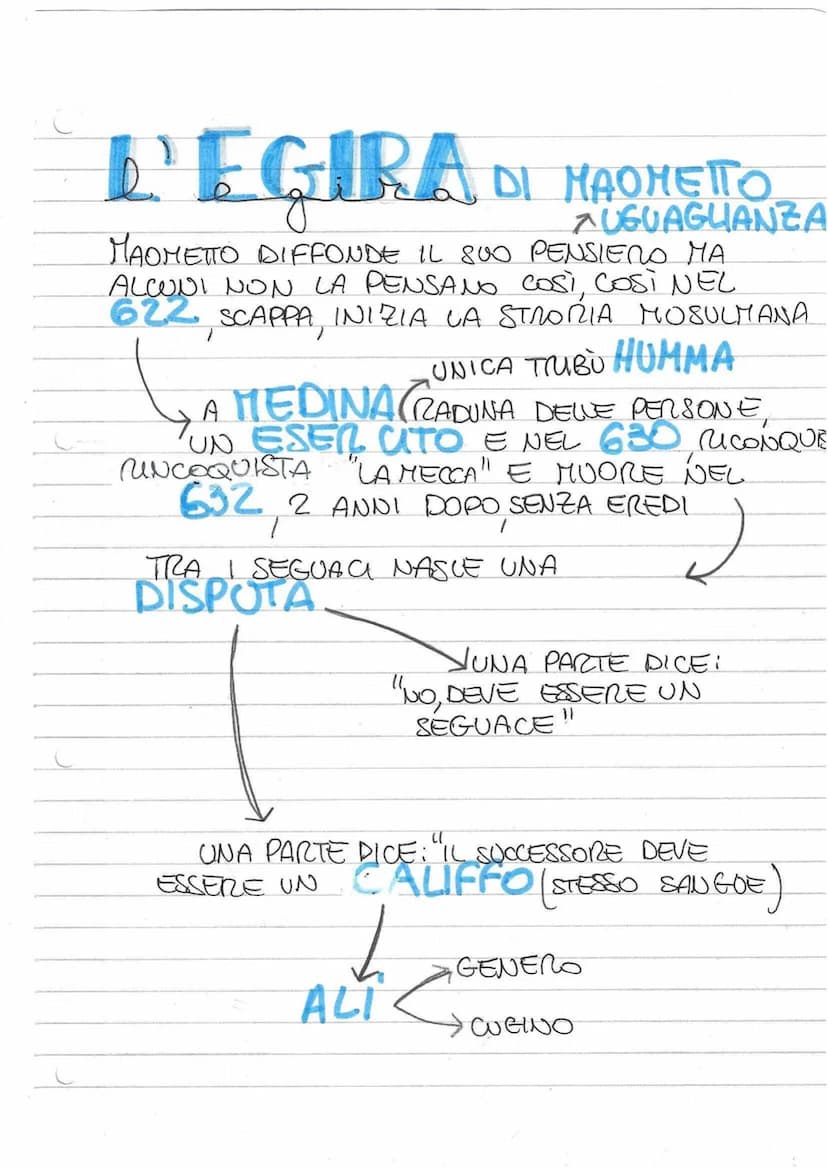 L'EGIRA DI MAOMETTO
l'egira
UGUAGLIANZA
MAOMETTO DIFFONDE IL SUO PENSIERO MA
ALCUNI NON LA PENSANO COSÌ, COSÌ NEL
622, SCAPPA, INIZIA LA STRORIA MUSULMANA
UNICA TRIBÙ HUMMA
A MEDINA (RADUNA DELLE PERSONE,
UN ESERCITO E NEL 630, RICONQUE
RINCOQUISTA "LA MECCA" E MUORE NEL
632, 2 ANNI DOPO, SENZA EREDI
TRA I SEGUACI NASCE UNA
DISPUTA
UNA PARTE DICE:
"NO, DEVE ESSERE UN
SEGUACE"
UNA PARTE DICE: "IL SUCCESSORE DEVE
ESSERE UN CALIFFO (STESSO SANGUE)
GENERO
ALÌ
CUGINO